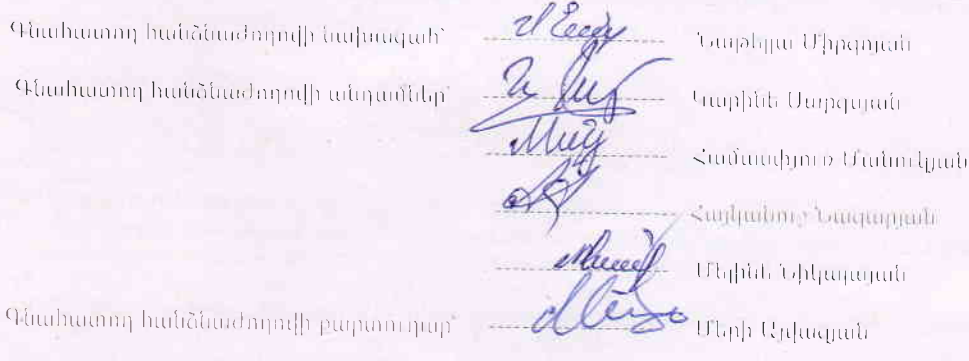 Գնահատող հանձնաժողովի նախագահ՝ Նաթելլա Միրզոյան
Գնահատող հանձնաժողովի անդամներ՝ Կարինե Սարգսյան
Համասփյուռ Մանուկյան
Հայկանուշ Նազարյան
Մելինե Նիկագոսյան
Գնահատող հանձնաժողովի քարտուղար՝ Մերի Աբխազյան